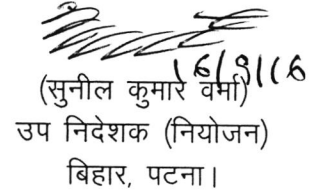 16/9/16
(सुनील कुमार वर्मा)
उप निदेशक (नियोजन)
बिहार, पटना।